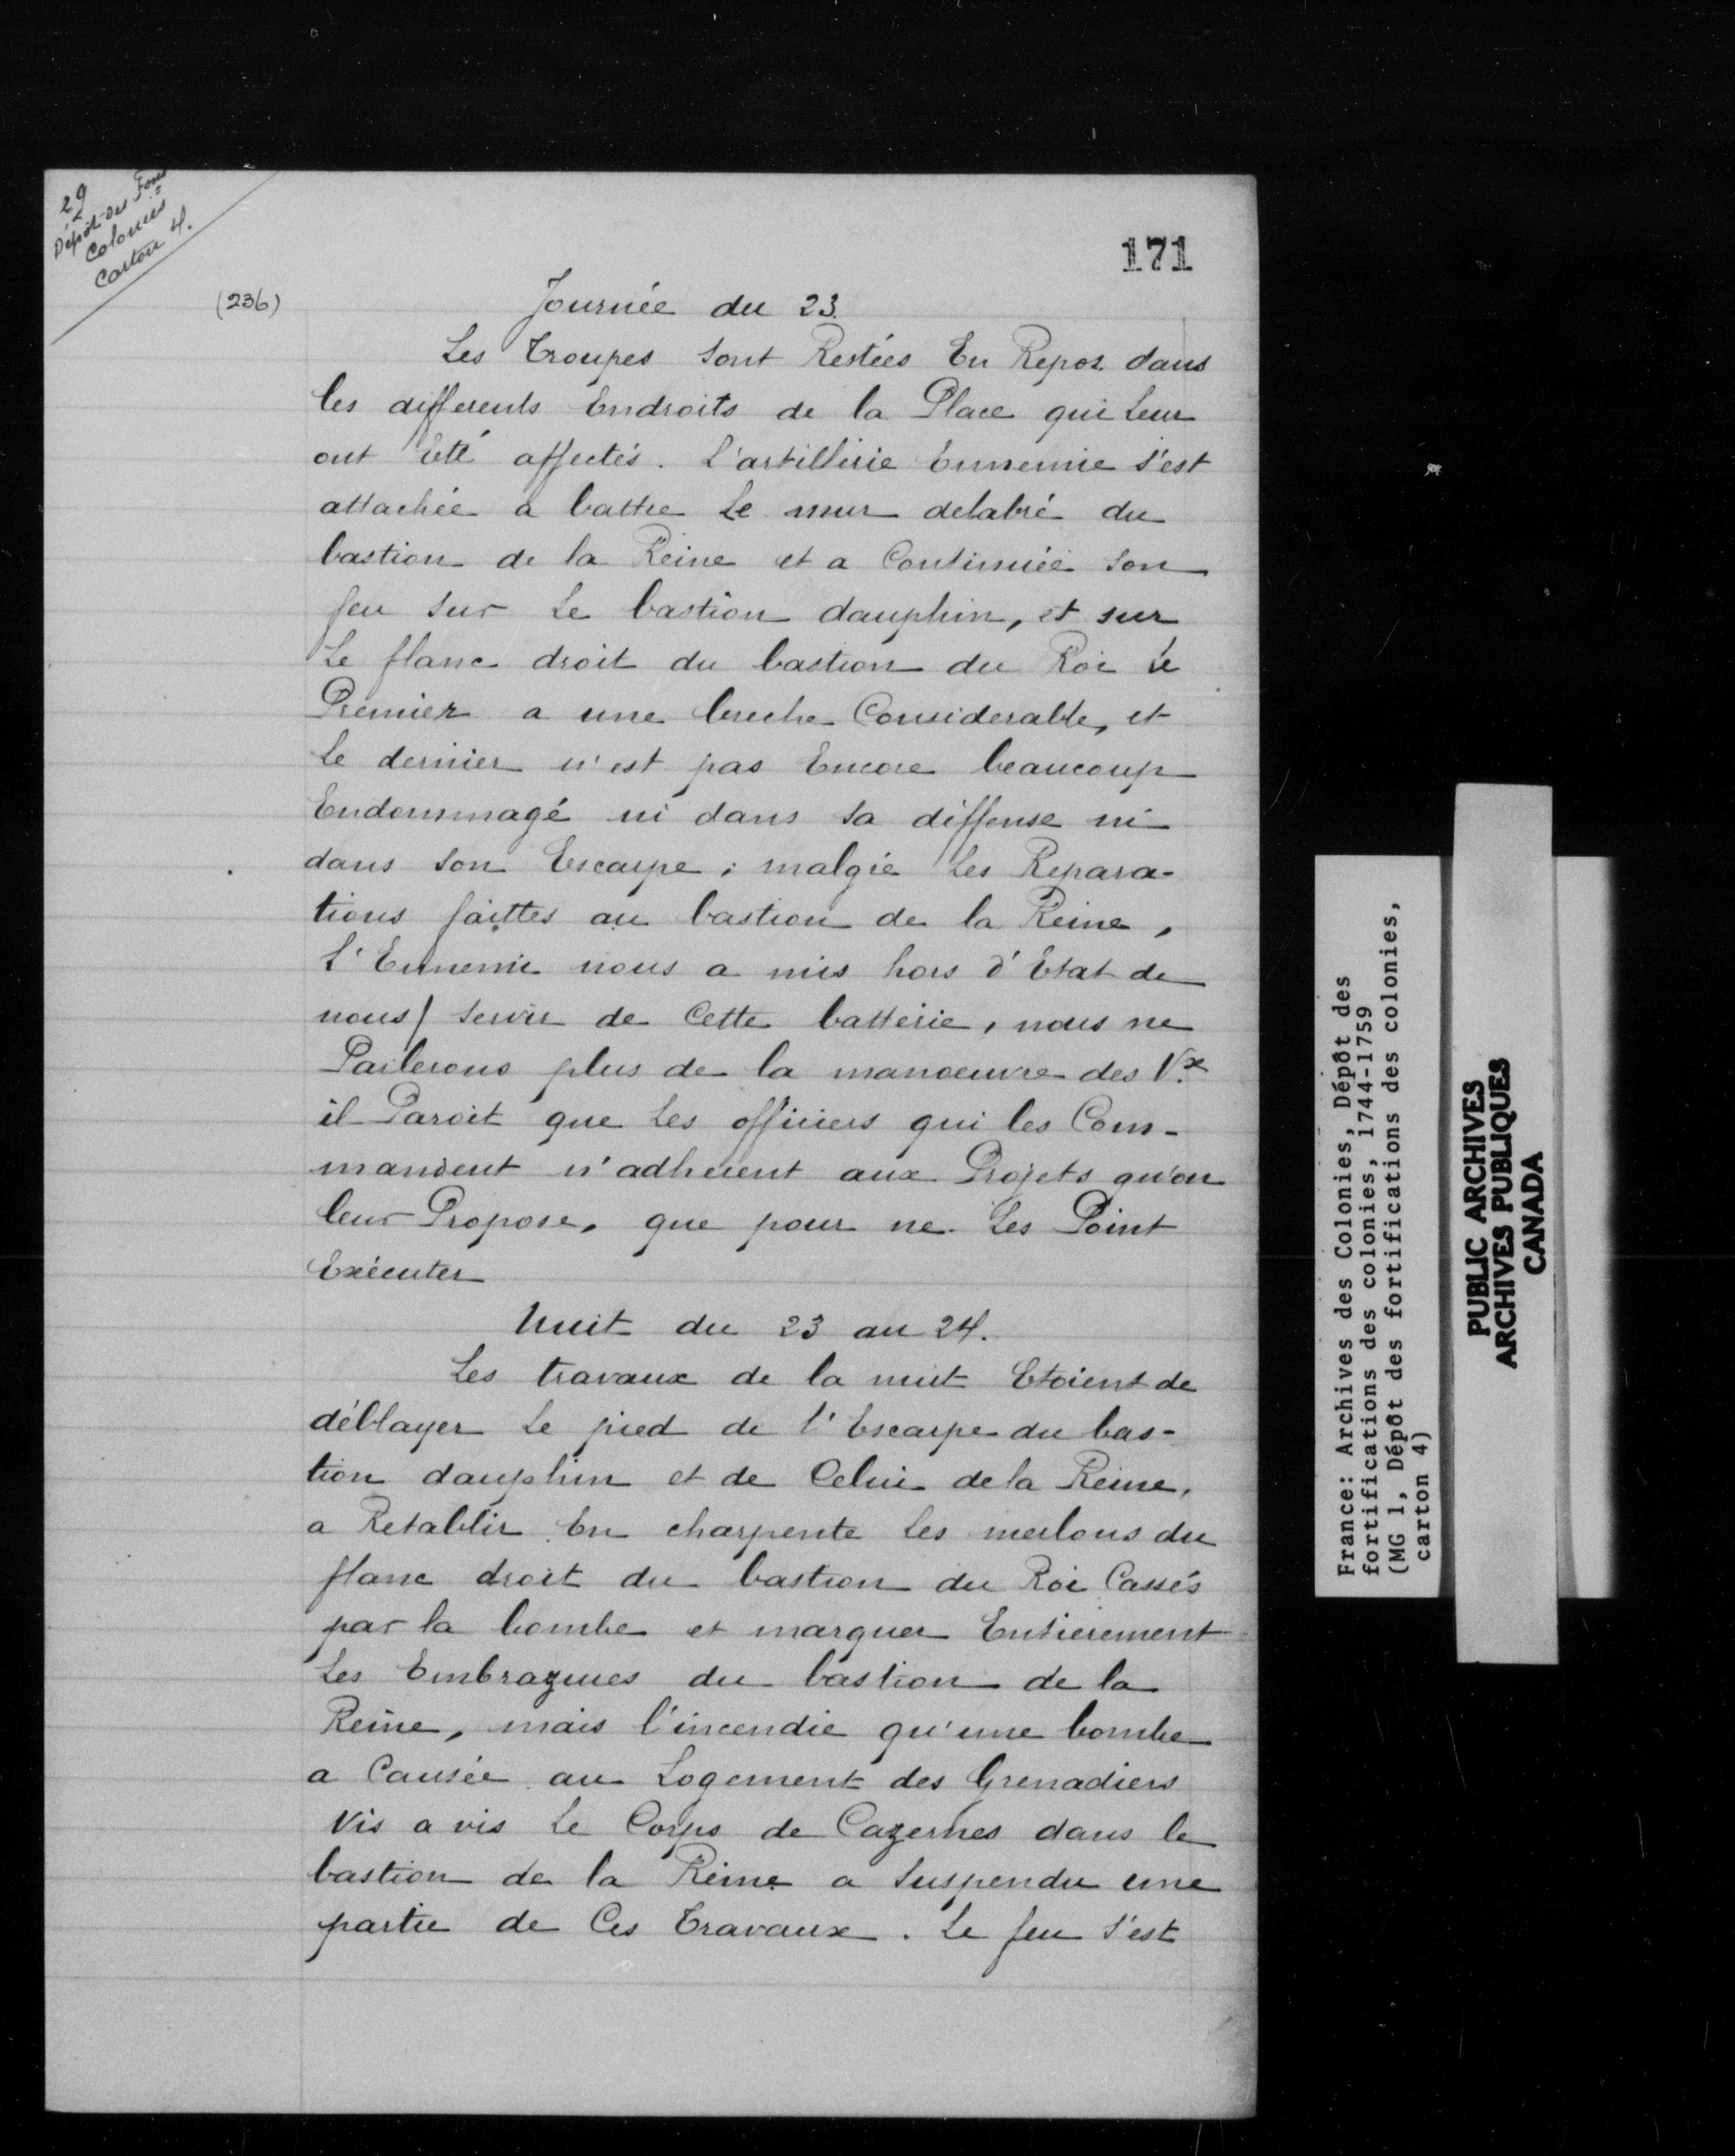 29
Dépôt des Fons
Colonies
Carton 4.
171
(236)
Journée du 23.
Les Troupes sont Restées En Repos dans
les differents Endroits de la Place qui Leur
ont Eté affectés. L'artillerie Ennemie s'est
attachée a battre Le mur delabré du
bastion de la Reine et a Continuée son
feu sur Le bastion dauphin, et sur
Le flanc droit du bastion du Roi Le
Premier a une breche Considerable, et
Le dernier n'est pas Encore beaucoup
Endommagé ni dans sa diffense ni
dans son Escarpe; malgré Les Repara-
tions faittes au bastion de la Reine,
l'Ennemi nous a mis hors d'Etat de
nous servir de Cette batterie, nous ne
Parlerons plus de la manoeuvre des Vx
il Paroit que Les officiers qui les Com-
mandent n'adherent aux Projets qu'on
leur Propose, que pour ne Les Point
Exécuter
Nuit du 23 au 24.
Les travaux de la nuit Etoient de
déblayer Le pied de l'Escarpe du bas-
tion dauphin et de Celui de la Reine,
a Retablir En charpente Les merlons du
flanc droit du bastion du Roi Cassés
par la bombe et marquer Entierement
Les Embrazures du bastion de la
Reine, mais l'incendie qu'une bombe
a Causée au Logement des Grenadiers
Vis a vis Le Corps de Cazernes dans le
bastion de la Reine a suspendu une
partie de Ces Travaux. Le feu s'est
France: Archives des Colonies, Dépôt des
fortifications des colonies, 1744-1759
(MG 1, Dépôt des fortifications des colonies,
carton 4)
PUBLIC ARCHIVES
ARCHIVES PUBLIQUES
CANADA